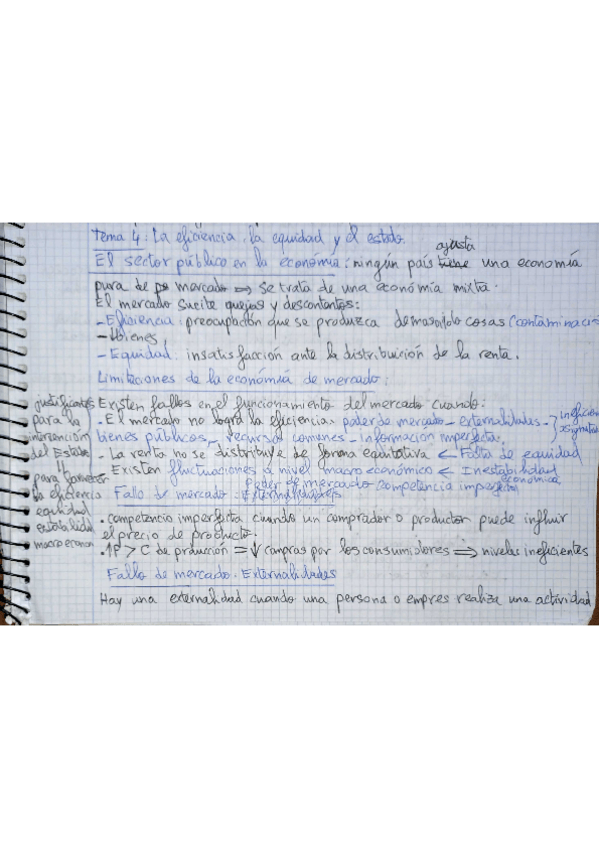 Tema 4: La eficiencia, la equidad y el estado.
ajusta
El sector público en la economía: ningún país tiene una economía
pura de ps mercado ⇒ se trata de una economía mixta.
El mercado sucite quejas y descontentos:
- Eficiencia: preocupación que se produzca demasiado cosas (contaminació
- bienes
- Equidad: insatisfacción ante la distribución de la renta.
Limitaciones de la economía de mercado:
Existen fallos en el funcionamiento del mercado cuando:
- El mercado no logra la eficiencia. poder de mercado - externalidades -
bienes públicos - recursos comunes - información imperfecta.
- La renta no se distribuye de forma equitativa ← Falta de equidad
Existen fluctuaciones a nivel macroeconómico ← Inestabilidad
económica
poder de mercado competencia imperfecta
Fallo de mercado: Externalidades
• competencia imperfecta cuando un comprador o productor puede influir
el precio de producto.
- ↑P > C de producción = ↓ compras por los consumidores ⇒ niveles ineficientes
Fallo de mercado. Externalidades
Hay una externalidad cuando una persona o empres realiza una actividad
para la
intervención
del Estado
⇓
para favorecer
la eficiencia
equidad
estabilidad
macroecon